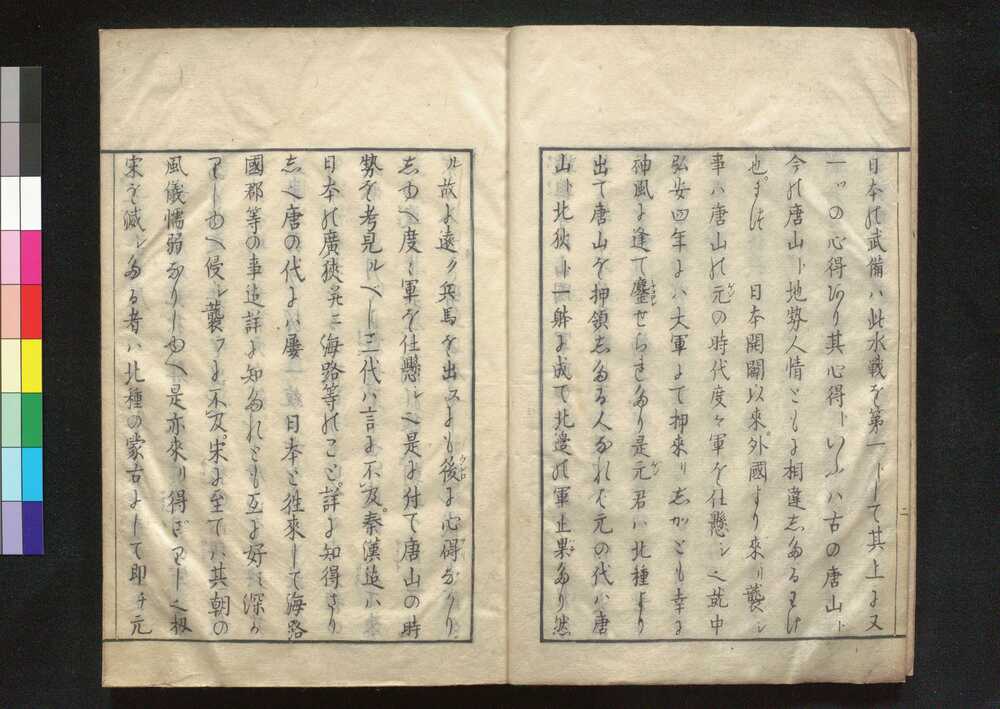 日本の武備ハ此水戦を第一トして其上に又
一ツの心得あり其心得トいふハ古の唐山ト
今の唐山ト地勢人情ともに相違したるわけ
也まつ 日本開闢以来外國より来り襲シ
事ハ唐山の元ゲンの時代度々軍を仕懸シ也就中
弘安四年にハ大軍にて押来りしかとも幸に
神風に逢て鏖ミナコロシせられたり是元ゲン君ハ北種より
出て唐山を押領したる人なれは元の代ハ唐
山ト北狄ト一躰に成て北邉の軍止果たり然
ル故に遠ク兵馬を出スにも後ウシロに心碍なかり
しゆへ度々軍を仕懸しへ是に付て唐山の時
勢を考見ルべし三代ハ言に不及秦漢迠ハ
日本の廣狭并ニ海路等のこと詳に知得さり
し也唐の代にハ屡 日本と徃来して海路
國郡等の事迠詳に知たれとも互に好ミ深カ
りしゆへ侵シ襲フに不及宋に至てハ其朝の
風儀懦弱なりしゆへ是亦来り得ざりし也扨
宋を滅シたる者ハ北種の蒙古にして即チ元
二